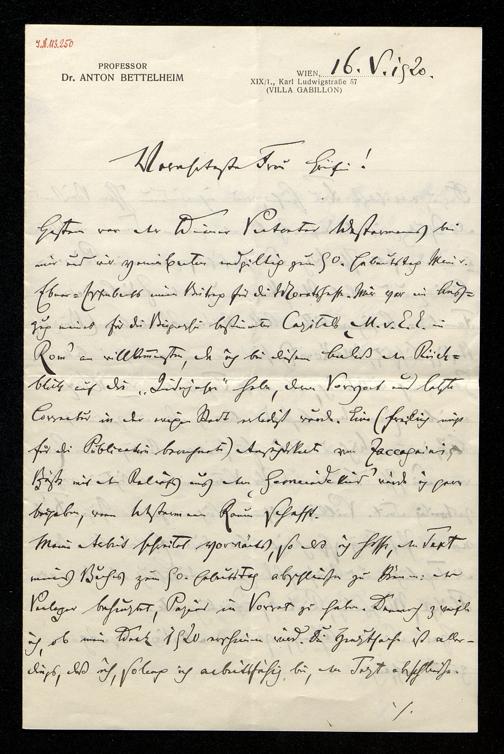 I.N. 113.250
PROFESSOR
Dr. ANTON BETTELHEIM
WIEN, 16. V. 1920.
XIX/1., Karl Ludwigstraße 57
(VILLA GABILLON)
Verehrteste Frau Gräfin!
Gestern war der Wiener Vertreter Westermanns bei
mir und wir vereinbarten endgiltig zum 90. Geburtstag Marie v.
Ebner-Eschenbachs einen Beitrag für die Monatshefte. Mir war ein Aus-
zug eines für die Biografie bestimmten Capitels „M. v. E. E. in
Rom" am willkommensten, da ich bei diesem Anlaß den Rück-
blick auf die
Correctur in der ewigen Stadt erledigt wurde. Eine (freilich nicht
für die Publication berechnete) Ansichtskarte von Zaccagninis
Büste mit den Reliefs aus dem „Gemeindekind" würde ich gern
beigeben, wenn Westermann Raum schafft.
Meine Arbeit schreitet vorwärts, so daß ich hoffe, den Text
meines Buches zum 90. Geburtstag abschließen zu können: der
Verleger behauptet, Papier in Vorrat zu haben. Dennoch zweifle
ich, ob mein Werk 1920 erscheinen wird. Die Hauptsache ist aller-
dings, daß ich, solang ich arbeitsfähig bin, den Text abschließe.
./.